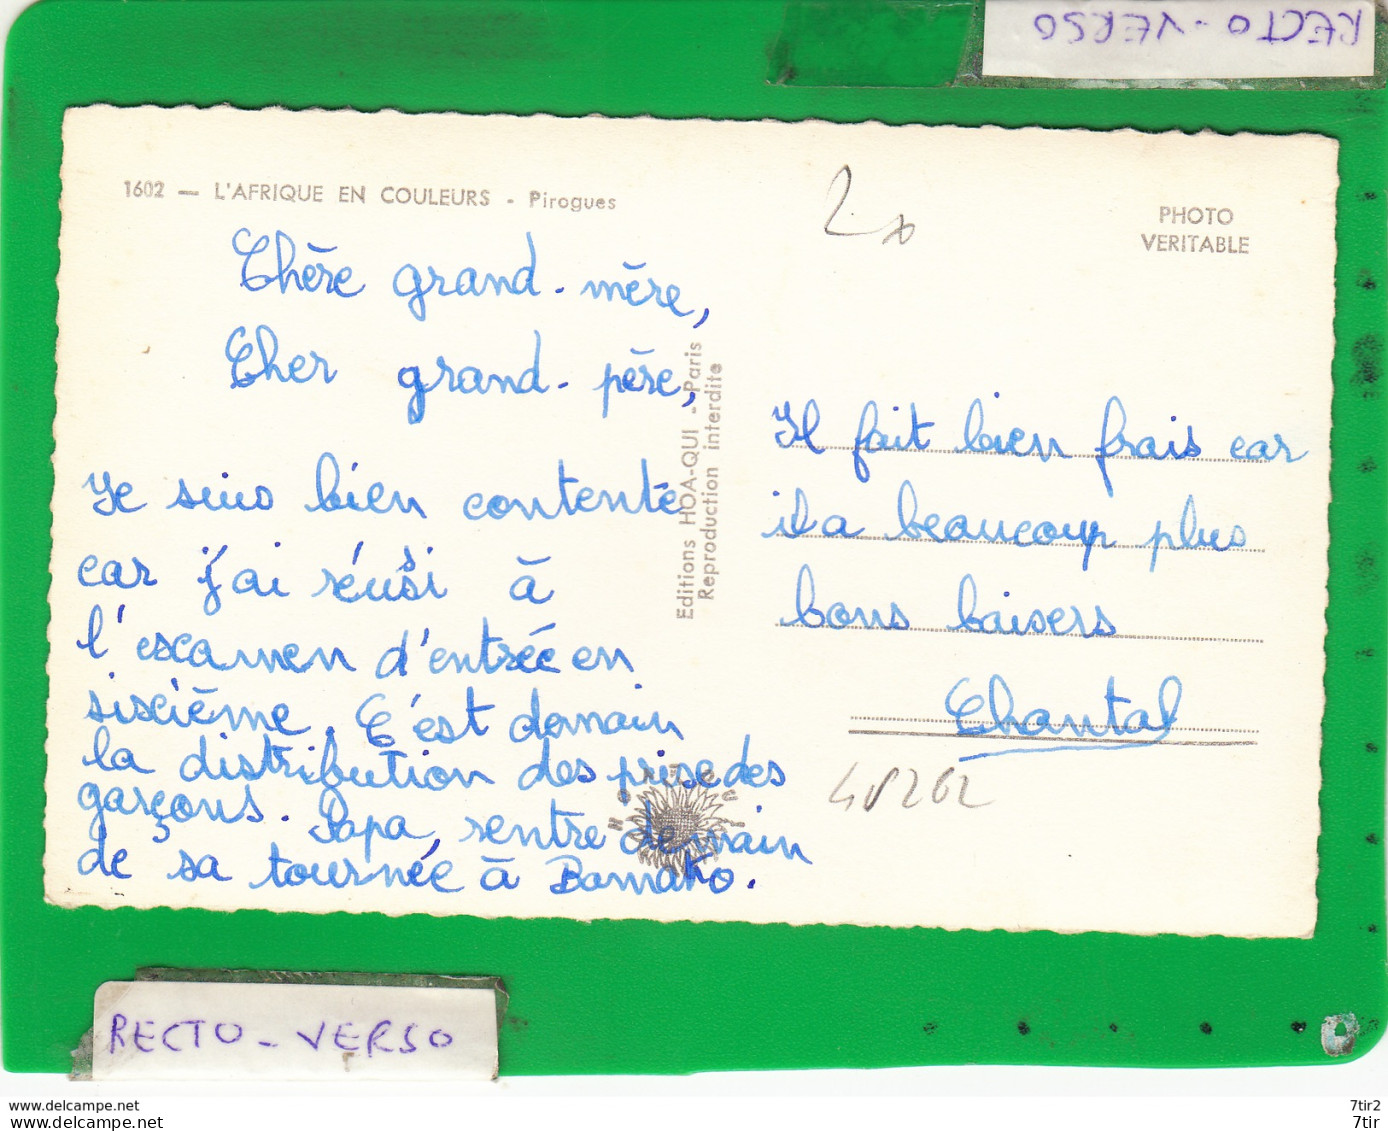 RECTO - VERSO
1602 — L'AFRIQUE EN COULEURS - Pirogues
PHOTO
VERITABLE
Chère grand-mère,
Cher grand-père,
Je suis bien contente
car j'ai réussi à
l'examen d'entrée en
sixième. C'est demain
la distribution des prix des
garçons. Papa, rentre demain
de sa tournée à Bamako.
Editions HOA-QUI - Paris
Reproduction interdite
Il fait bien frais car
il a beaucoup plus
bons baisers
Chantal
RECTO - VERSO
www.delcampe.net
www.delcampe.net
7tir2
7tir